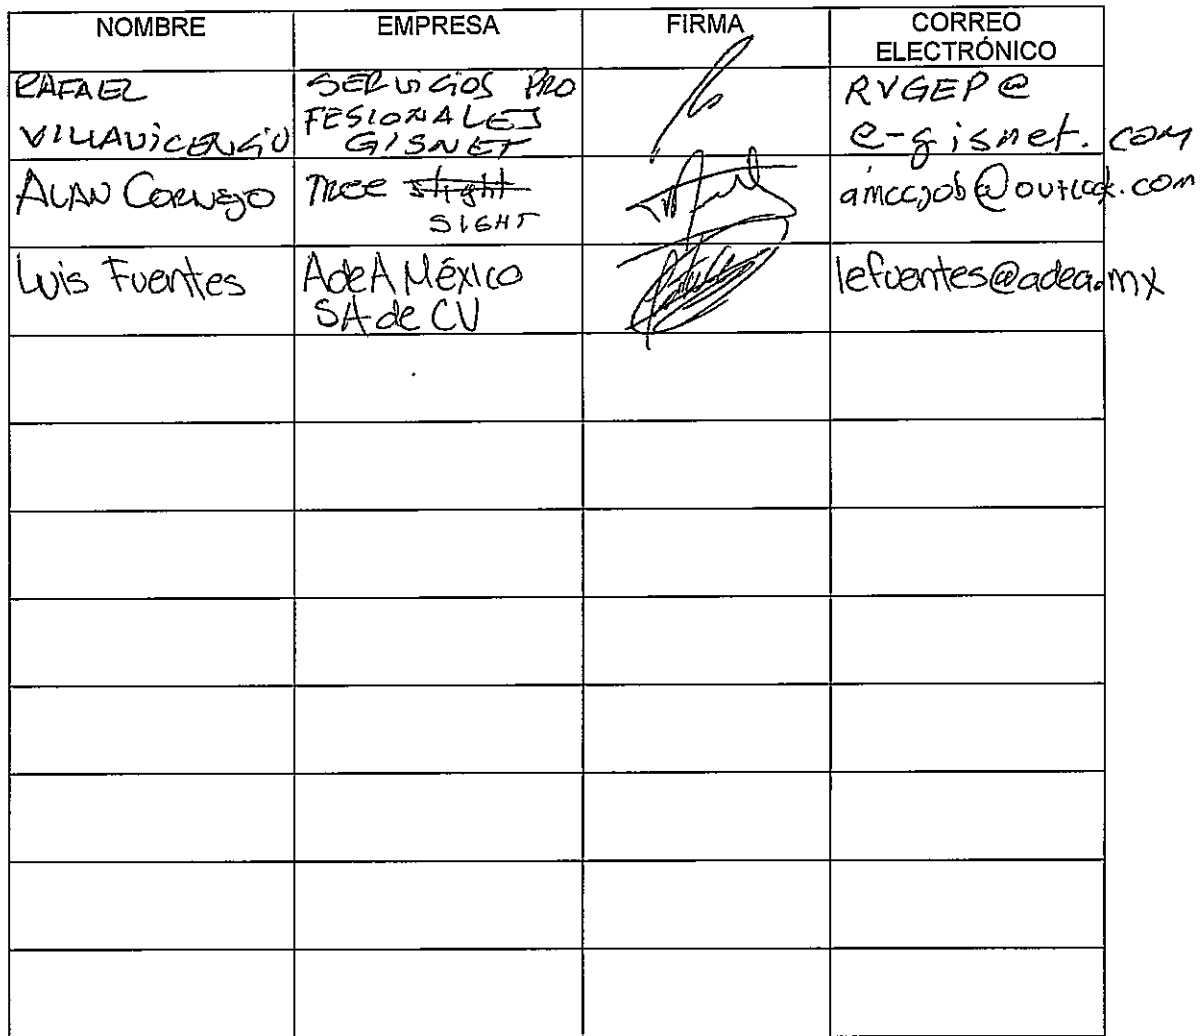 NOMBRE EMPRESA FIRMA CORREO
ELECTRÓNICO
RAFAEL
VILLAVICENCIO
SERVICIOS PRO
FESIONALES
GISNET
RVGEP@
e-gisnet.com
ALAN CORNEJO
TREE slight
SIGHT
amccjob@outlook.com
Luis Fuentes
AdeA México
SA de CV
lefuentes@adea.mx